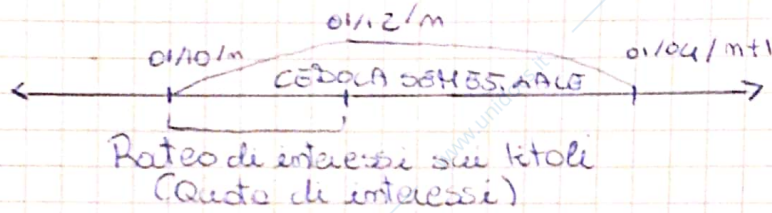 01/12/n
01/10/n
01/04/n+1
CEDOLA SEMESTRALE
Rateo di interessi sui titoli
(Quota di interessi)